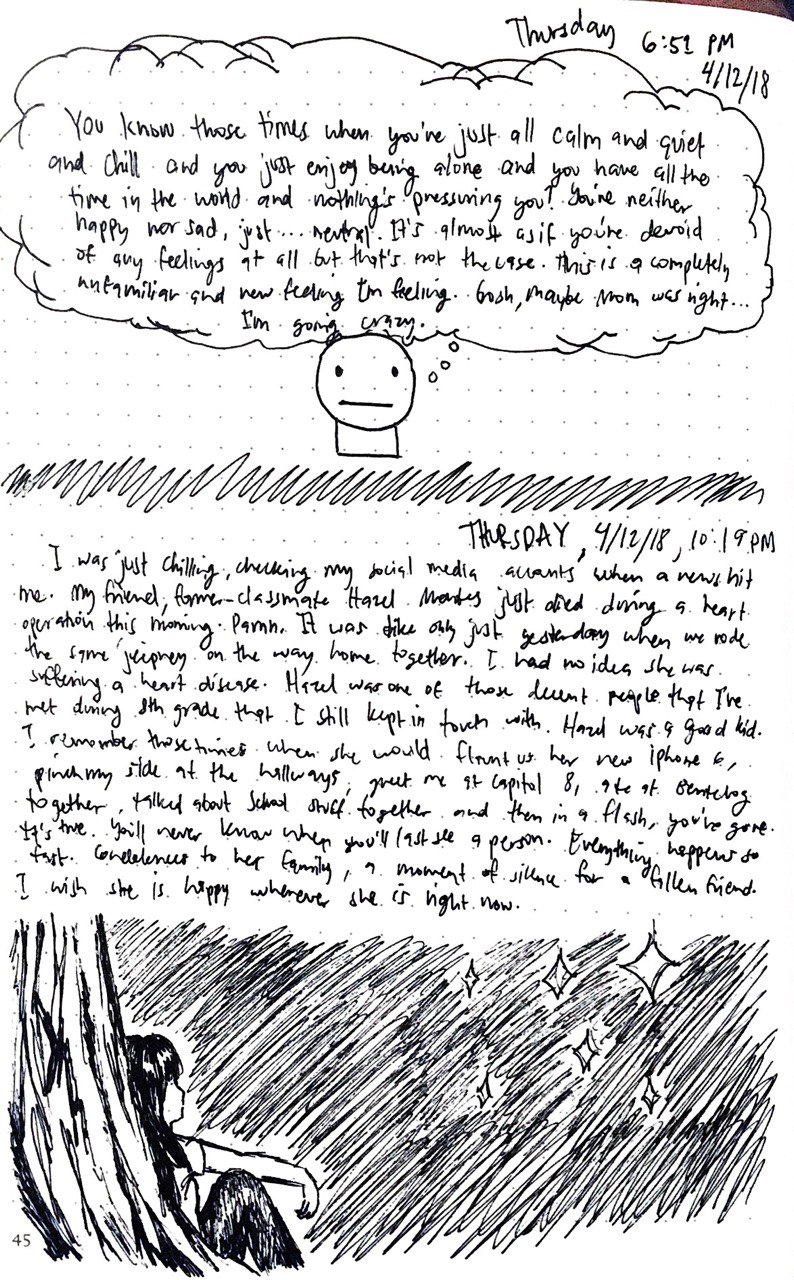 Thursday 6:51 PM
4/12/18
You know those times when you're just all calm and quiet
and chill and you just enjoy being alone and you have all the
time in the world and nothing's pressuring you? You're neither
happy nor sad, just... neutral. It's almost as if you're devoid
of any feelings at all but that's not the case. This is a completely
unfamiliar and new feeling I'm feeling. Gosh, maybe Mom was right...
I'm going crazy.
THURSDAY, 4/12/18, 10:19 PM
I was just chilling, checking my social media accounts when a news hit
me. My friend, former-classmate Hazel just died during a heart
operation this morning. Damn. It was like only just yesterday when we rode
the same jeepney on the way home together. I had no idea she was
suffering a heart disease. Hazel was one of those decent people that I've
met during 8th grade that I still kept in touch with. Hazel was a good kid.
I remember those times when she would flaunt us her new iphone 6,
pinch my side at the hallways, greet me at capitol 8, ate at
together, talked about school stuff together and then in a flash, you're gone.
It's true. You'll never know when you'll last see a person. Everything happens so
fast. Condolences to her family, a moment of silence for a fallen friend.
I wish she is happy wherever she is right now.
45